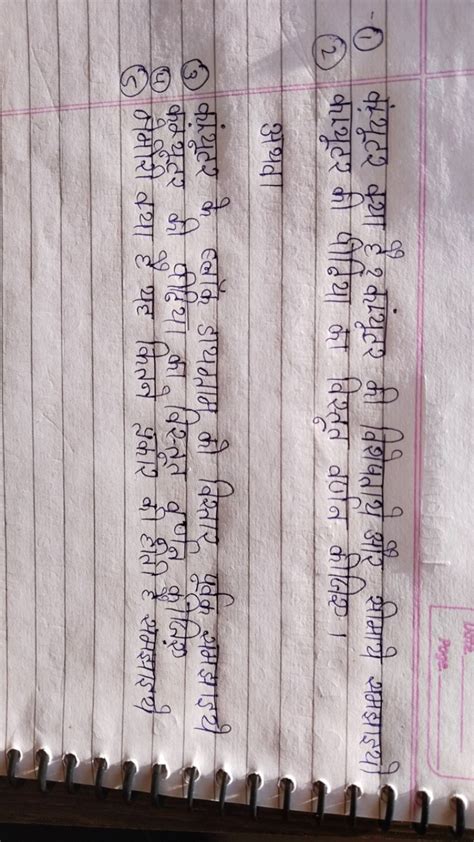 Date
Page
-① कंप्युटर क्या है? कंप्युटर की विशेषताये और सीमाये समझाइये
② कंप्युटर की पीढिया का विस्तृत वर्णन कीजिए।
अथवा
③ कंप्युटर के ब्लॉक डायग्राम को विस्तार पूर्वक समझाइये
④ कंप्युटर की पीढिया का विस्तृत वर्णन कीजिए
⑤ मेमोरी क्या है यह कितने प्रकार की होती है समझाइये